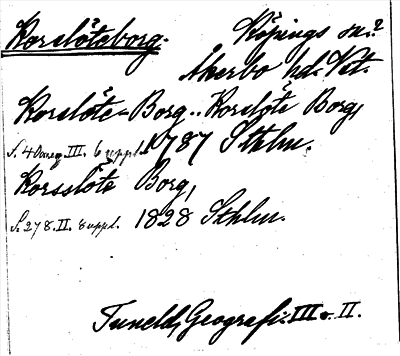 Korslöteborg. Köpings sn.?
Åkerbo hd. Vst.
Korslöte-Borg.. Korslöte Borg,
III. 6 uppl. 1787 Sthlm.
Korsslöte Borg,
S. 278. II. 8 uppl. 1828 Sthlm.
Tuneld, Geografi. III o. II.